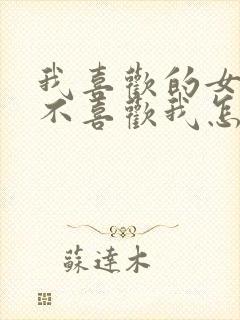 我喜歡的女
不喜歡我怎
蘇達木